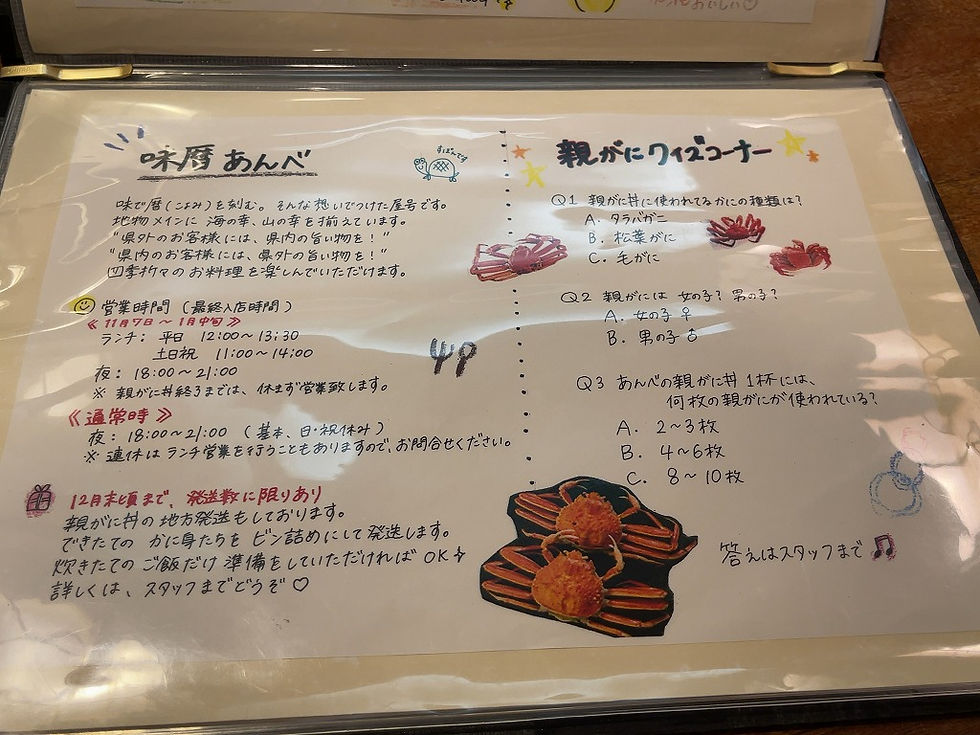 おいしい♡
味暦 あんべ
すっぽんです
味で暦(こよみ)を刻む。そんな想いでつけた屋号です。
地物メインに 海の幸、山の幸を揃えています。
"県外のお客様には、県内の旨い物を!"
"県内のお客様には、県外の旨い物を!"
四季折々の お料理 を楽しんでいただけます。
営業時間 (最終入店時間)
《11月7日~1月中旬》
ランチ: 平日 12:00~13:30
土日祝 11:00~14:00
夜: 18:00~21:00
※ 親がに丼終るまでは、休まず営業致します。
《通常時》
夜: 18:00~21:00 (基本、日・祝休み)
※ 連休は ランチ営業を行うこともありますので、お問合せください。
12月末頃まで、発送数に限りあり
親がに丼の 地方発送もしております。
できたての かに身たちを ビン詰めにして 発送します。
炊きたての ご飯だけ 準備をしていただければ OK
詳しくは、スタッフまでどうぞ♡
親がに クイズコーナー
Q1 親がに丼に使われてるかにの種類は?
A. タラバガニ
B. 松葉がに
C. 毛がに
Q2 親がには 女の子? 男の子?
A. 女の子♀
B. 男の子♂
Q3 あんべの親がに丼 1杯には、
何枚の親がにが使われている?
A. 2~3枚
B. 4~6枚
C. 8~10枚
答えはスタッフまで♫